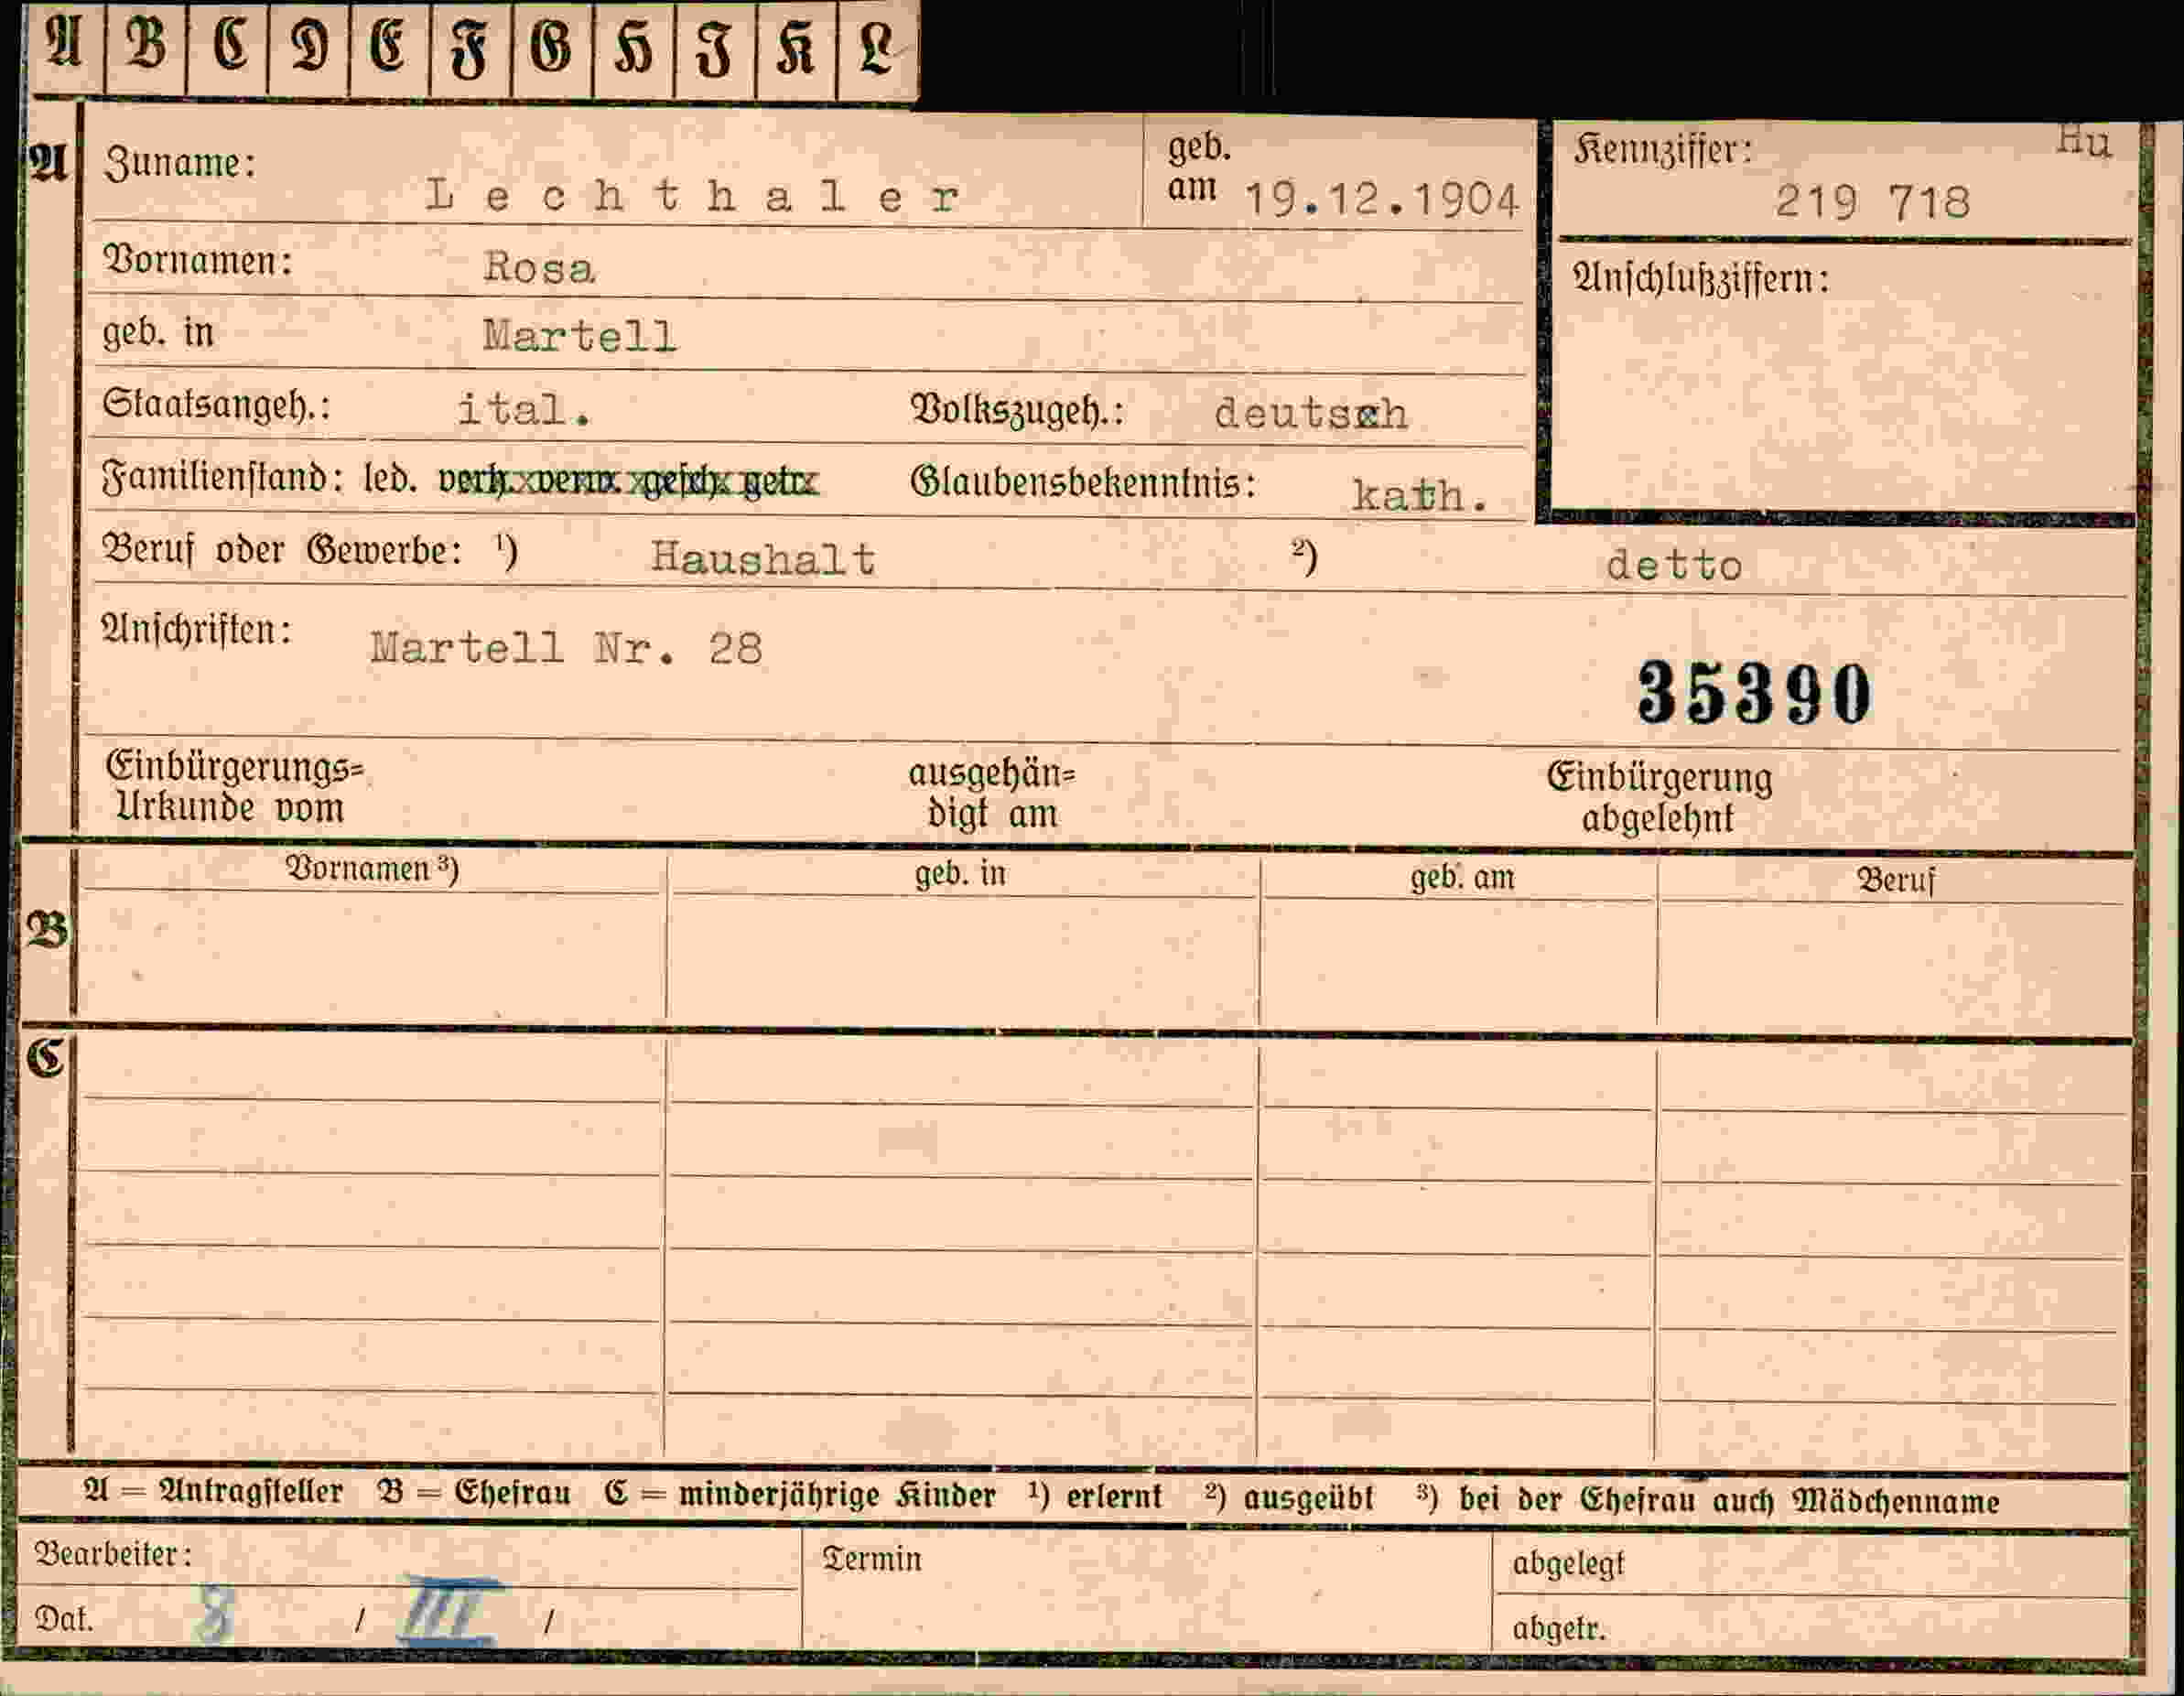 A B C D E F G H I K L
A Zuname: Lechthaler geb. am 19.12.1904 Kennziffer: Hu 219 718
Vornamen: Rosa Anschlußziffern:
geb. in Martell
Staatsangeh.: ital. Volkszugeh.: deutsch
Familienstand: led. verh. verw. gesch. getr. Glaubensbekenntnis: kath.
Beruf oder Gewerbe: ¹) Haushalt ²) detto
Anschriften: Martell Nr. 28
35390
Einbürgerungs= ausgehän= Einbürgerung
Urkunde vom digt am abgelehnt
Vornamen ³) geb. in geb. am Beruf
B
C
A = Antragsteller B = Ehefrau C = minderjährige Kinder ¹) erlernt ²) ausgeübt ³) bei der Ehefrau auch Mädchenname
Bearbeiter: Termin abgelegt
Dat. 8 / III / abgetr.